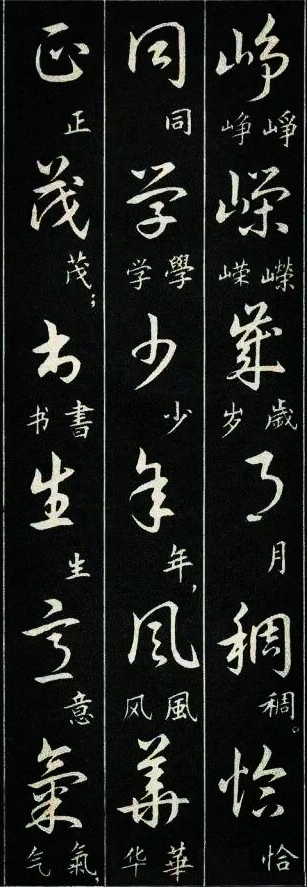 峥 峥 崢 嵘 嵘 嶸 岁 岁 歲 月 月 稠 稠。 恰 恰
同 同 学 学 學 少 少 年 年, 风 风 風 华 华 華
正 正 茂 茂; 书 书 書 生 生 意 意 气 气 氣,